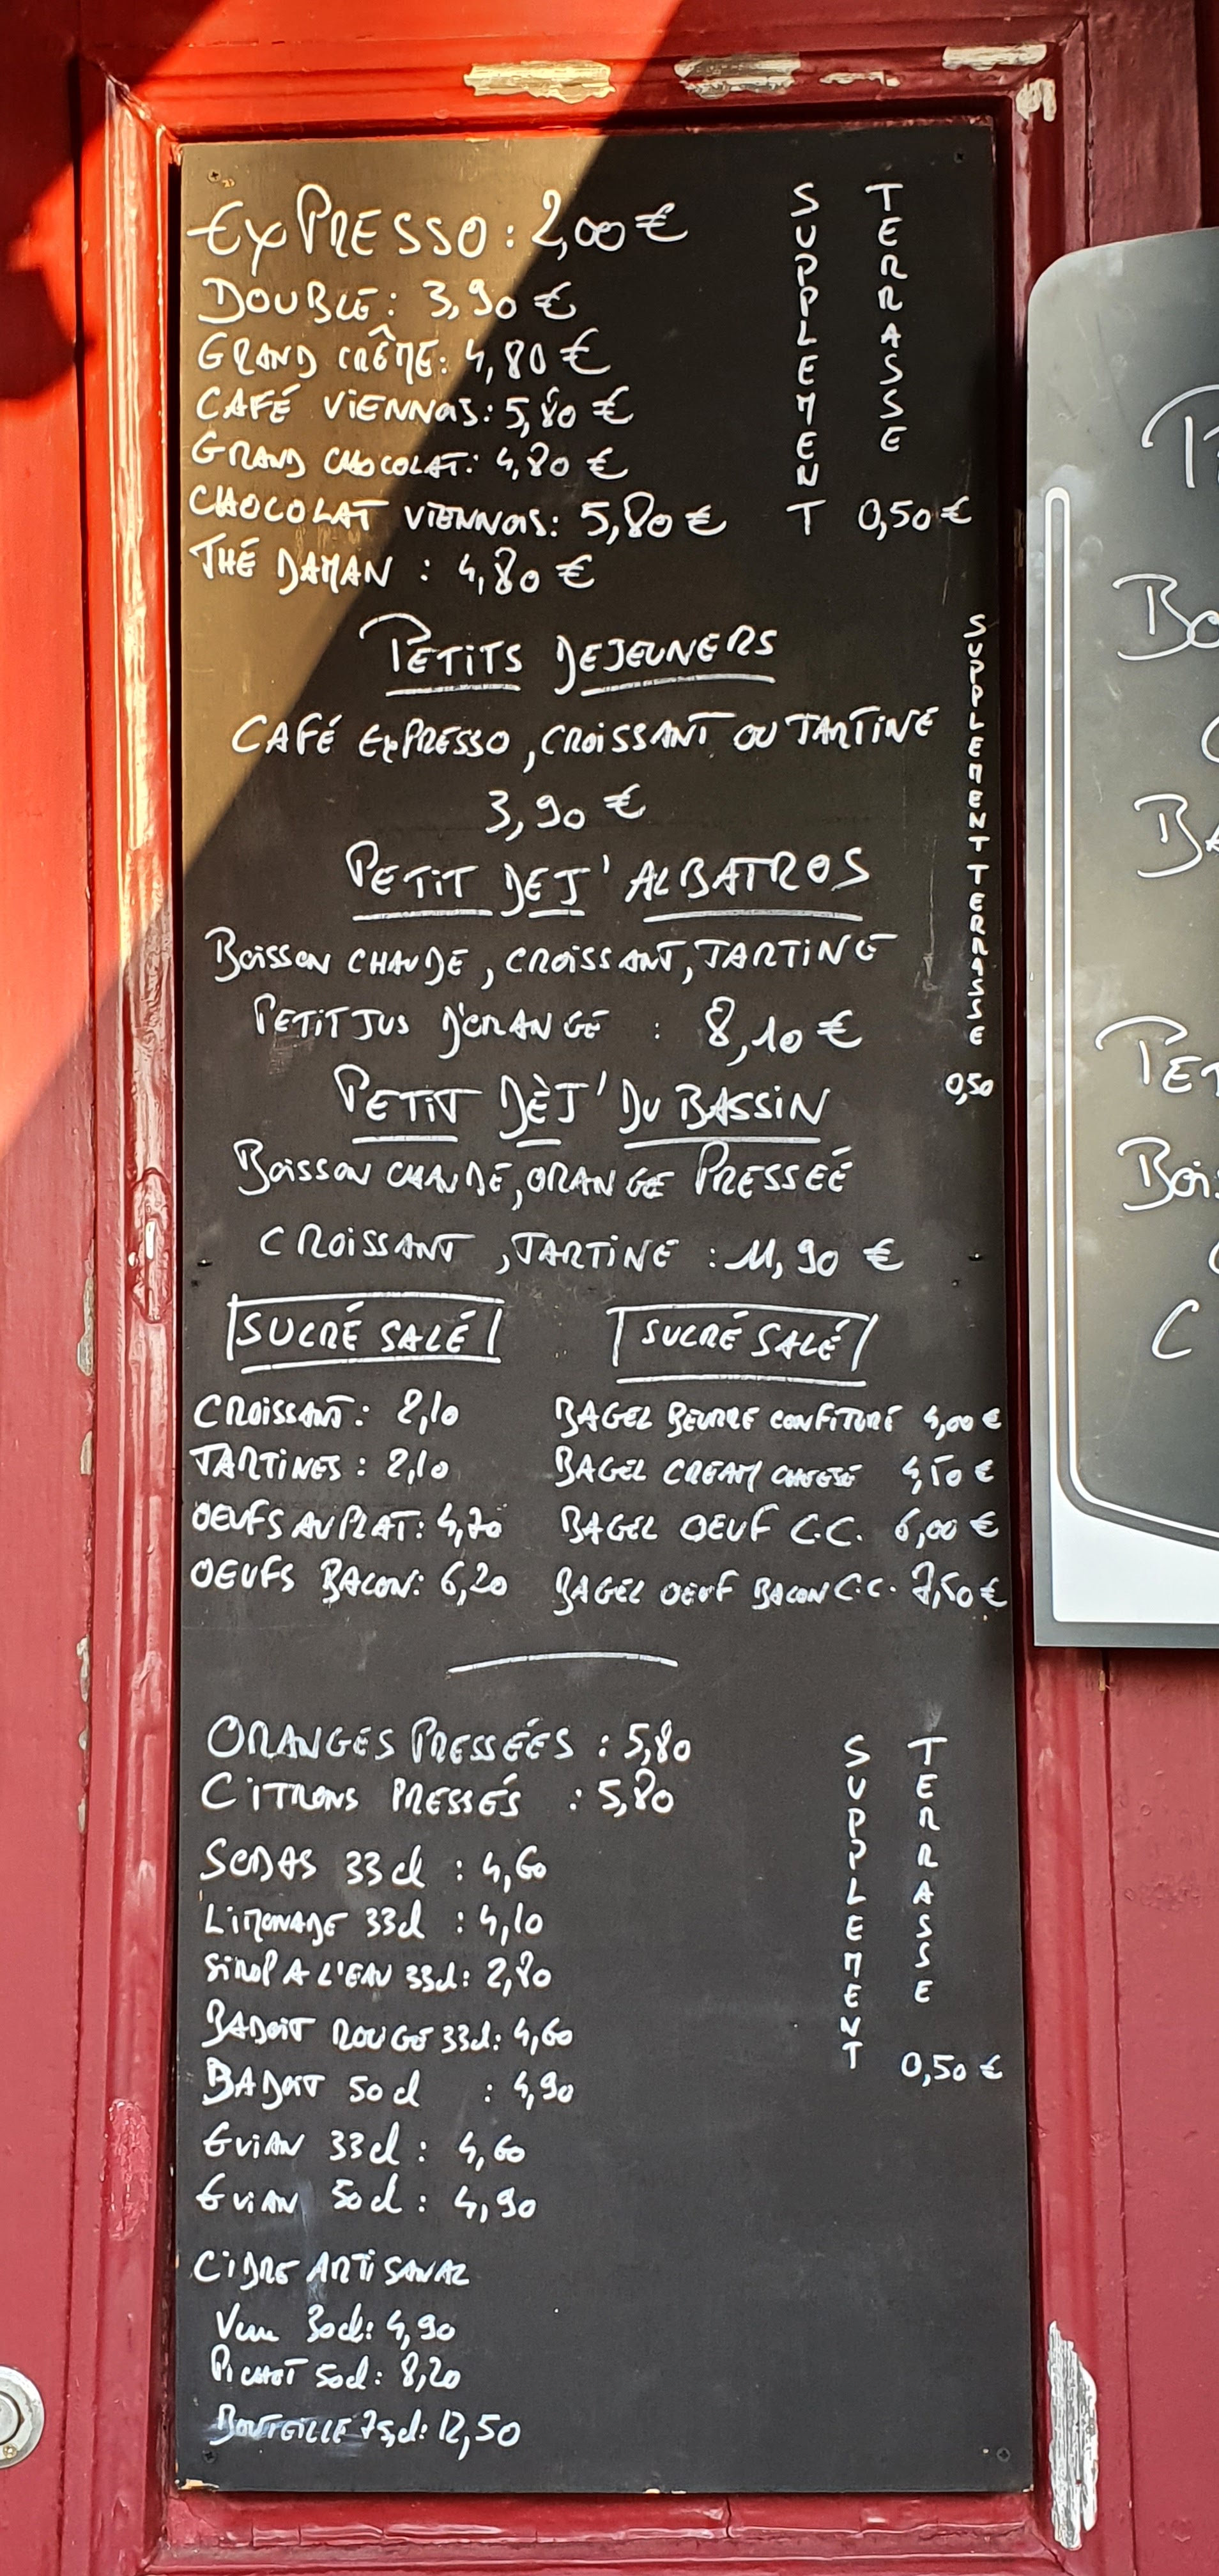 EXPRESSO : 2,00 €
DOUBLE : 3,90 €
GRAND CRÊME : 4,80 €
CAFÉ VIENNOIS : 5,80 €
GRAND CHOCOLAT : 4,80 €
CHOCOLAT VIENNOIS : 5,80 €
THÉ DAMAN : 4,80 €
SUPPLEMENT
TERRASSE
0,50 €
PETITS DEJEUNERS
CAFÉ EXPRESSO, CROISSANT OU TARTINE
3,90 €
PETIT DEJ' ALBATROS
BOISSON CHAUDE, CROISSANT, TARTINE
PETIT JUS D'ORANGE : 8,10 €
PETIT DÈJ' DU BASSIN
BOISSON CHAUDE, ORANGE PRESSEÉ
CROISSANT, TARTINE : 11,90 €
SUPPLEMENT TERRASSE
0,50
SUCRÉ SALÉ
CROISSANT : 2,10
TARTINES : 2,10
OEUFS AU PLAT : 4,70
OEUFS BACON : 6,20
SUCRÉ SALÉ
BAGEL BEURRE CONFITURE 4,00 €
BAGEL CREAM CHEESE 4,50 €
BAGEL OEUF C.C. 6,00 €
BAGEL OEUF BACON C.C. 7,50 €
ORANGES PRESSÉES : 5,80
CITRONS PRESSÉS : 5,80
SODAS 33cl : 4,60
LIMONADE 33cl : 4,10
SIROP A L'EAU 33cl : 2,80
BADOIT ROUGE 33cl : 4,60
BADOIT 50cl : 4,90
EVIAN 33cl : 4,60
EVIAN 50cl : 4,90
SUPPLEMENT
TERRASSE
0,50 €
CIDRE ARTISANAL
Verre 30cl : 4,90
PICHET 50cl : 8,20
BOUTEILLE 75cl : 12,50